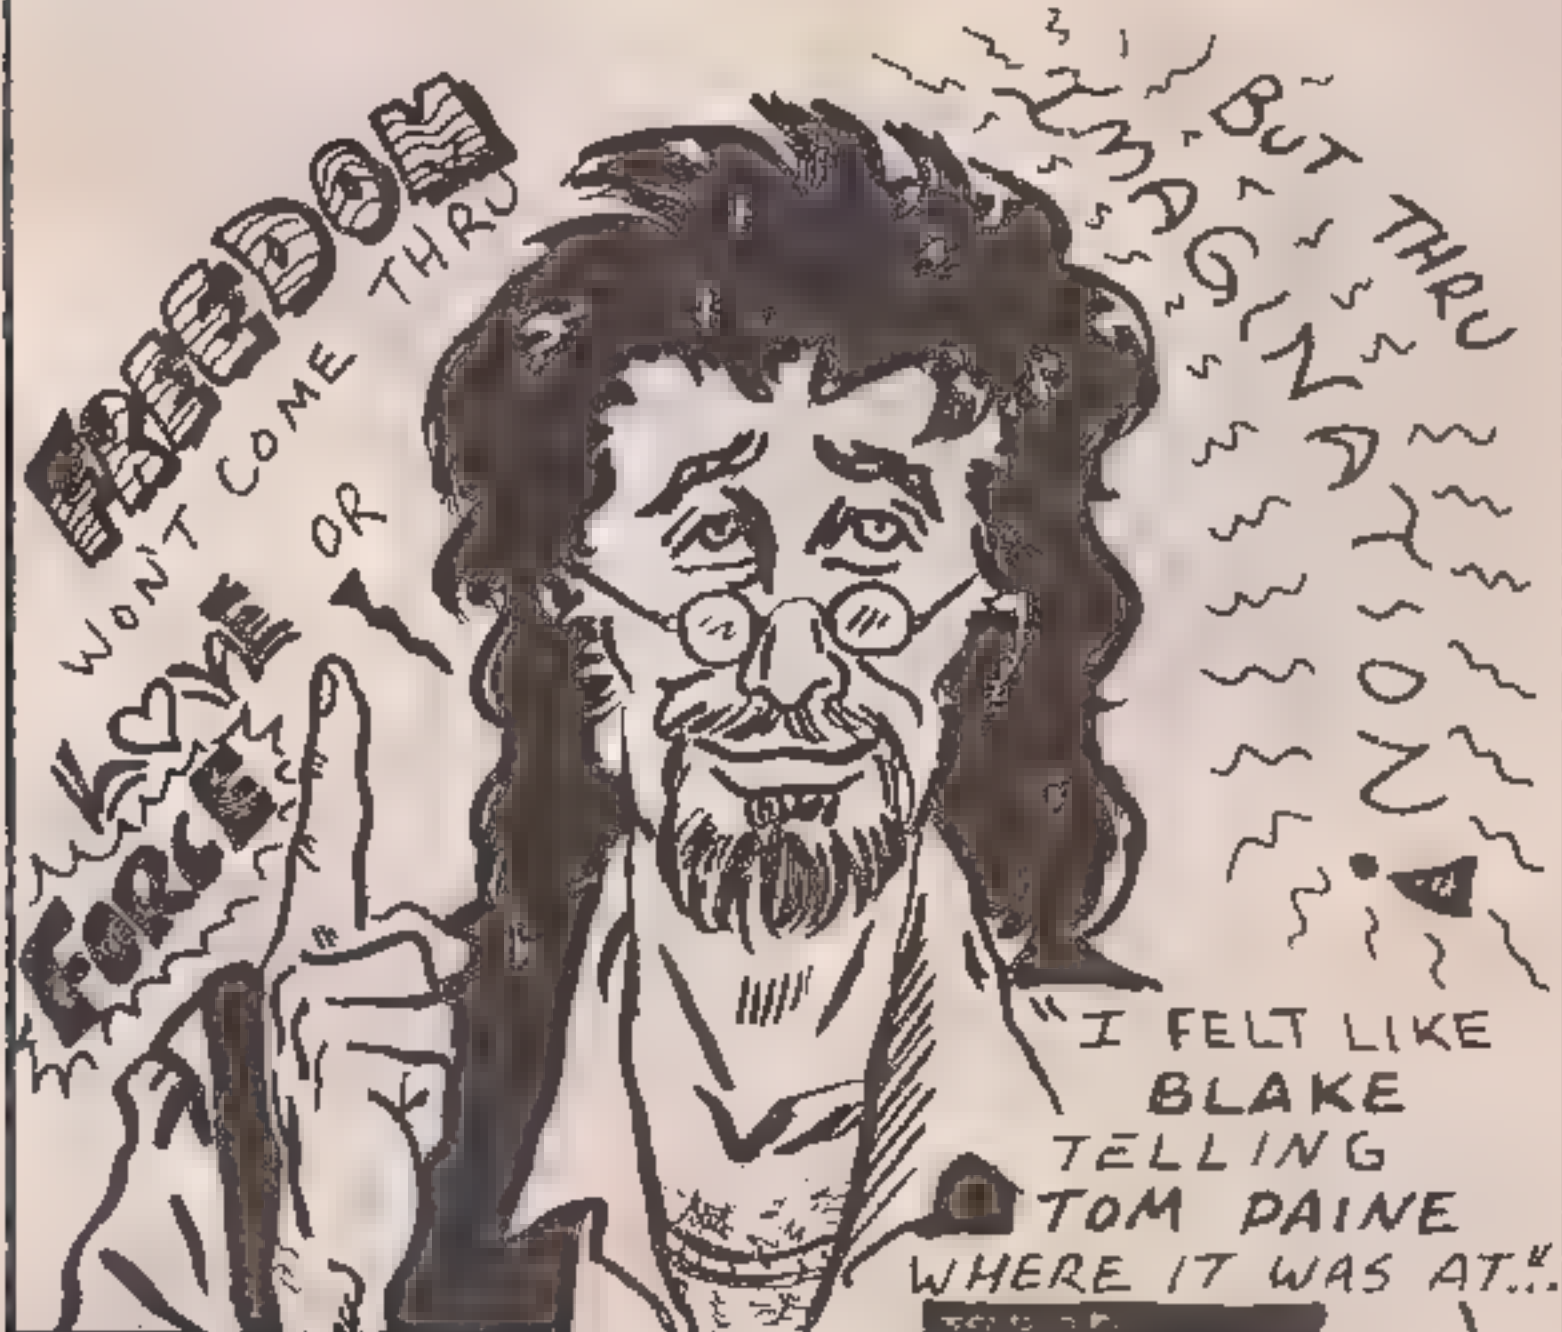 FREEDOM
WON'T COME THRU
LOVE OR
FORCE
BUT THRU
IMAGINATION!
"I FELT LIKE
BLAKE
TELLING
TOM PAINE
WHERE IT WAS AT..."